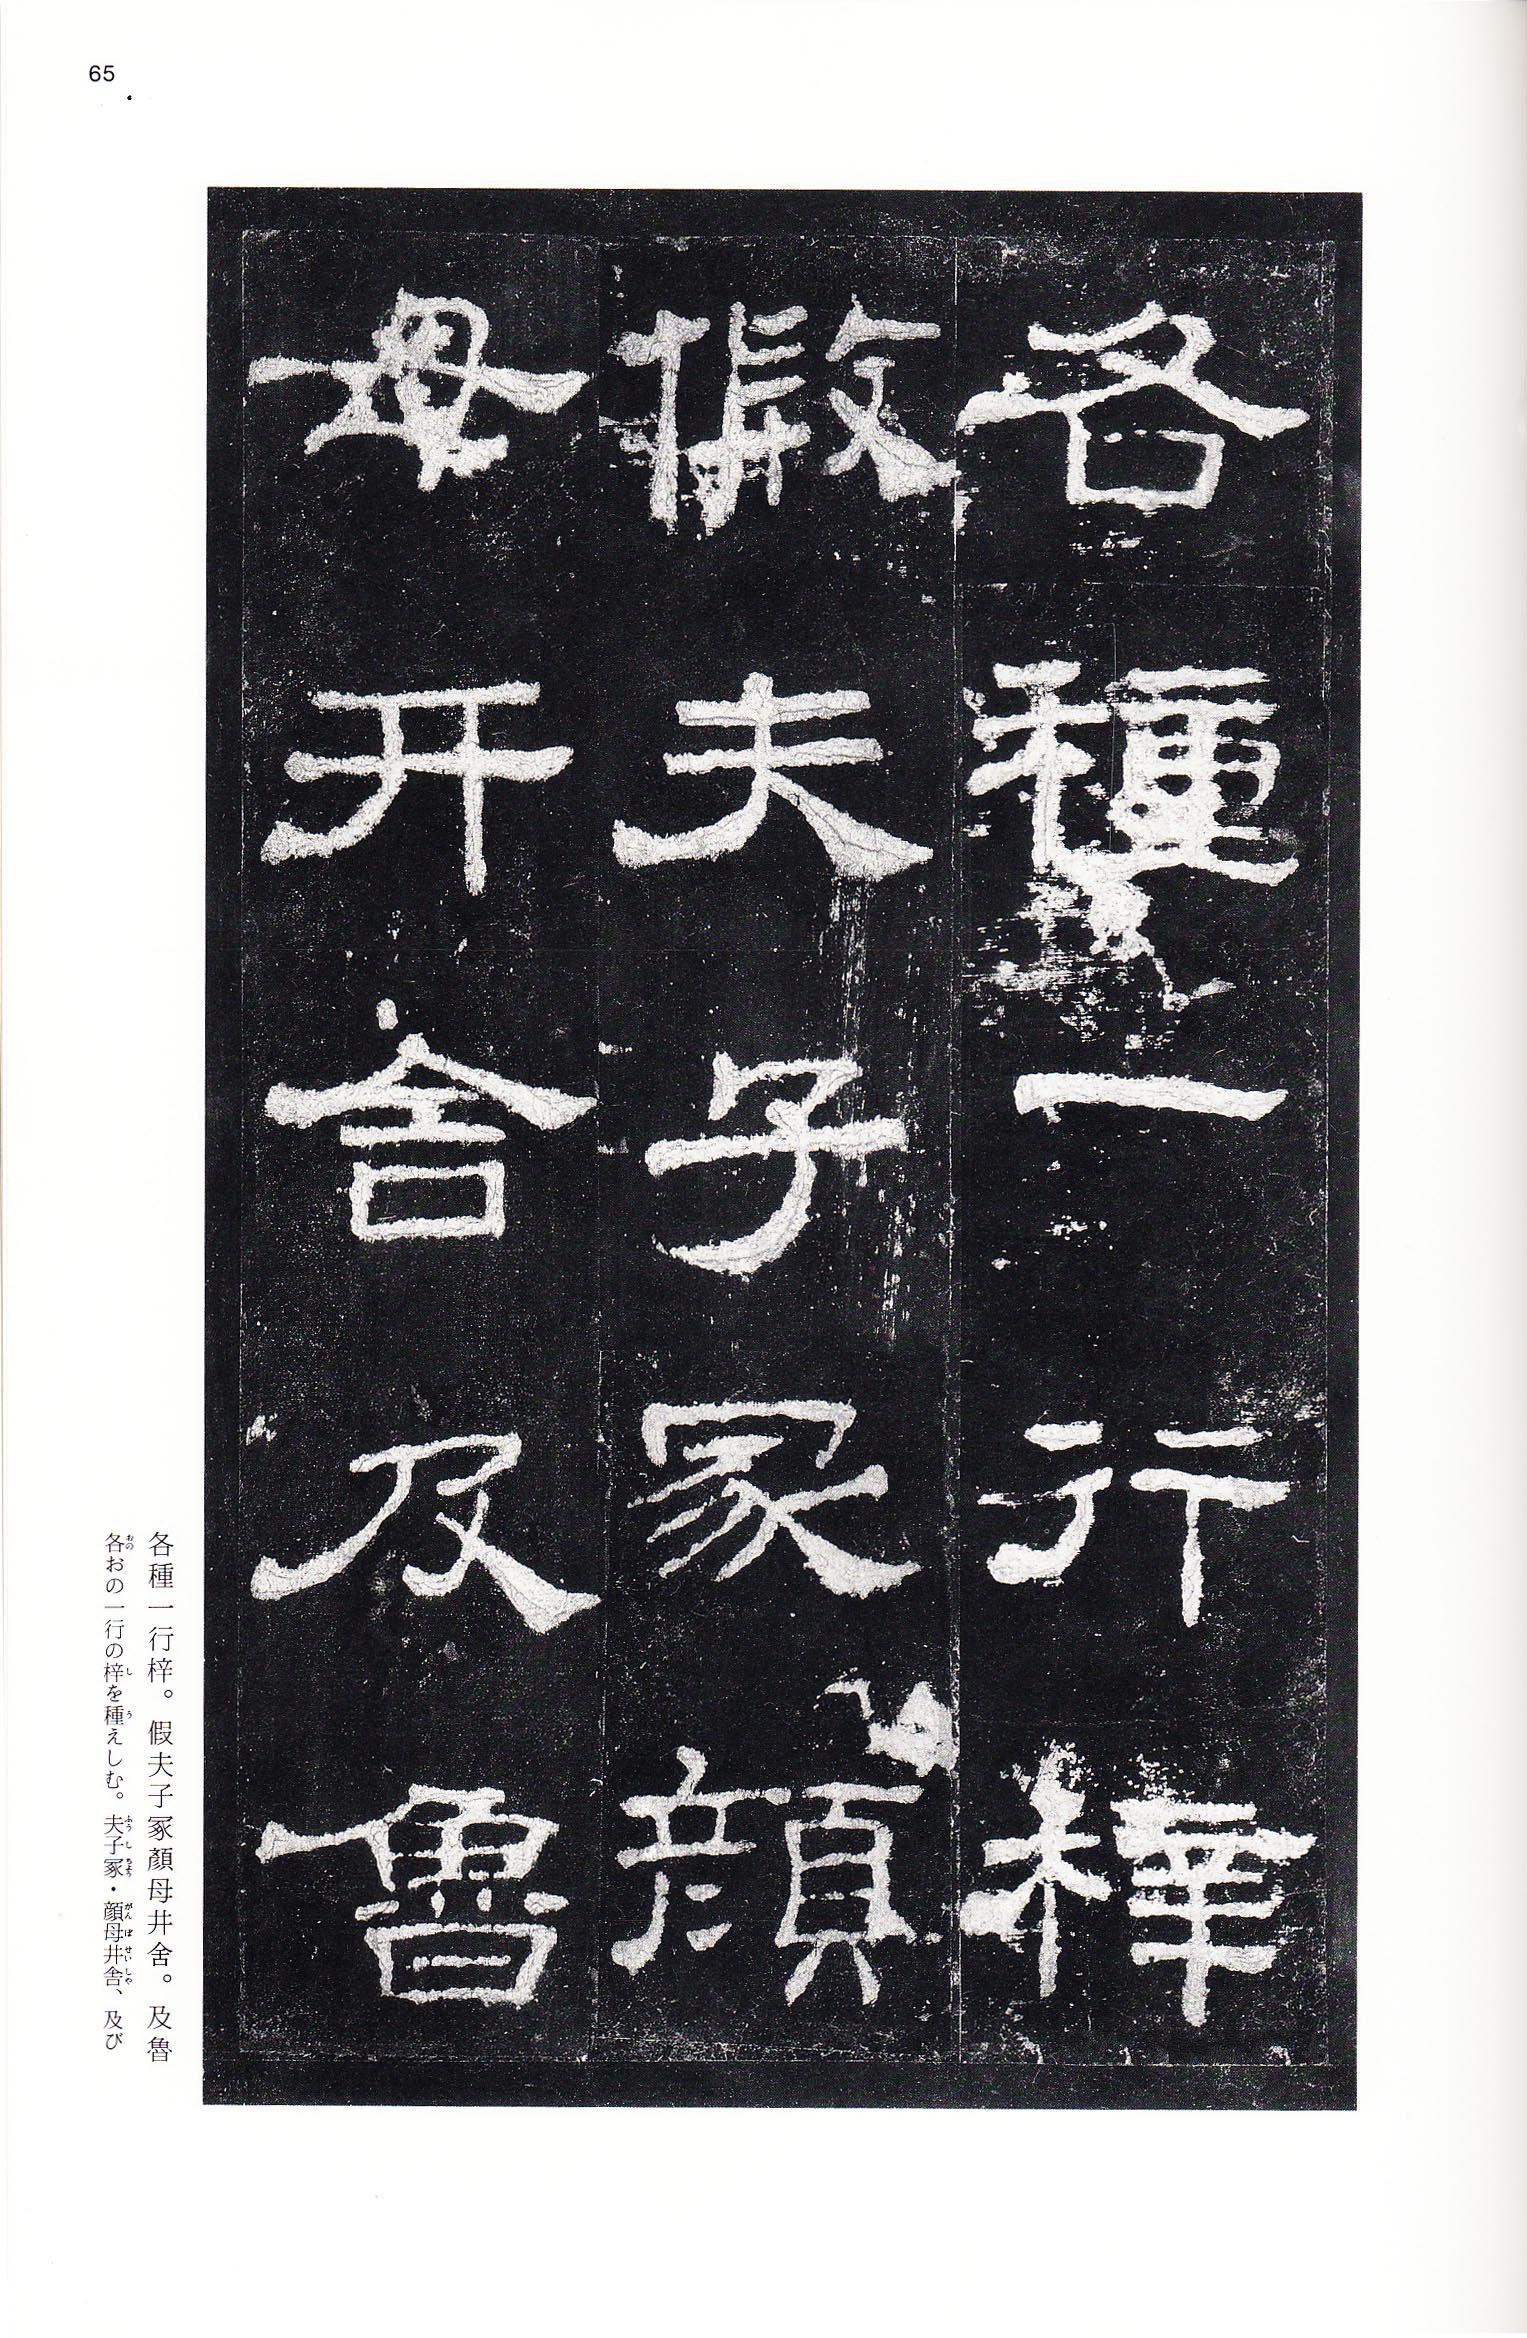 65
各種一行梓
假夫子冢顏
母开舍及魯
各種一行梓。假夫子冢顏母井舍。及魯
各おの一行の梓を種えしむ。夫子冢・顔母井舎、及び